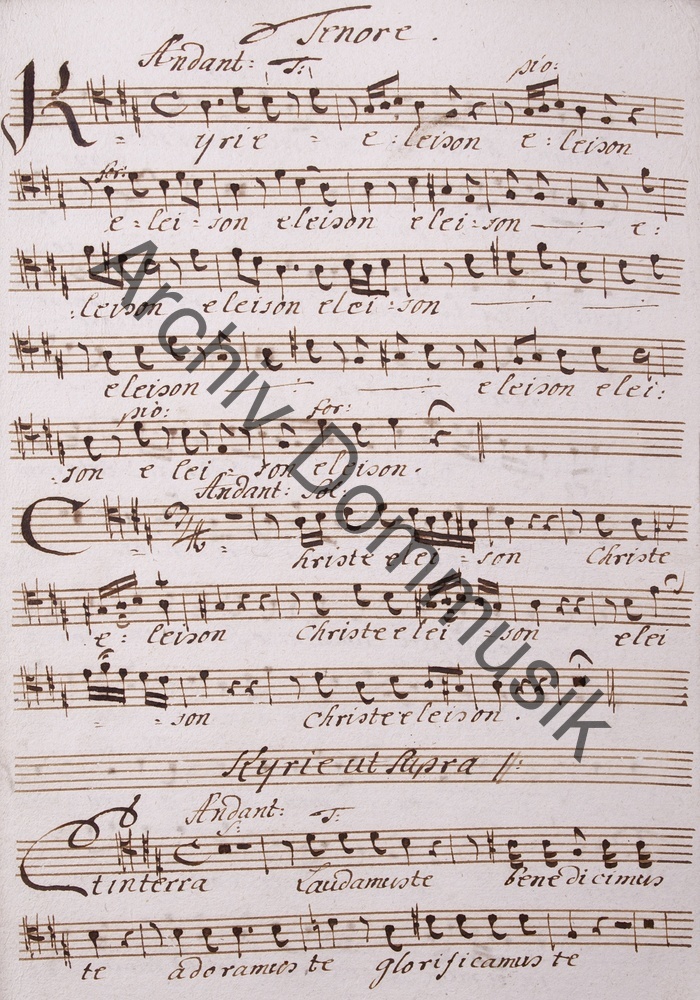 Tenore.
Andant: T:
pio:
Kyrie e:leison e:leison
for:
e=lei=son eleison elei=son e:
:leison eleison elei=son
eleison eleison elei:
pio: for:
:son e lei=son eleison.
Andant: Sol:
Christe elei=son Christe
e:leison Christe elei=son elei
=son Christe eleison.
Kyrie ut Supra
Andant:
T:
Et in terra Laudamus te benedicimus
te adoramus te glorificamus te
Archiv Dommusik